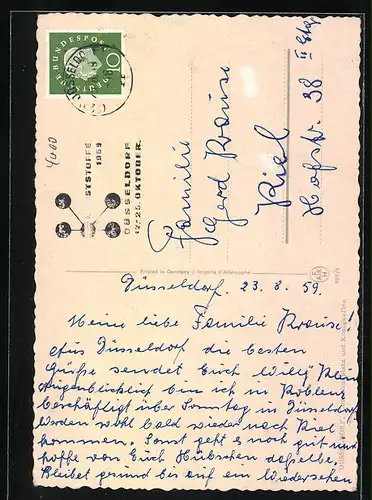 DEUTSCHE BUNDESPOST
10
DÜSSELDORF
KUNSTSTOFFE
1959
DÜSSELDORF
17-25. OKTOBER.
4000
Familie
Gerd Krause
Kiel
Hofstr. 38 II Etg.
Printed in Germany / Importé d'Allemagne
Düsseldorf. 23. 8. 59.
Meine liebe Familie Krause!
Aus Düsseldorf die besten
Grüße sendet Euch Willy Klein
Augenblicklich bin ich in Koblenz
beschäftigt über Sonntag in Düsseldorf
Werden wohl bald wieder nach Kiel
kommen. Sonst geht es noch gut und
hoffe von Euch Hübschen dasselbe.
Bleibet gesund bis auf ein Wiedersehen